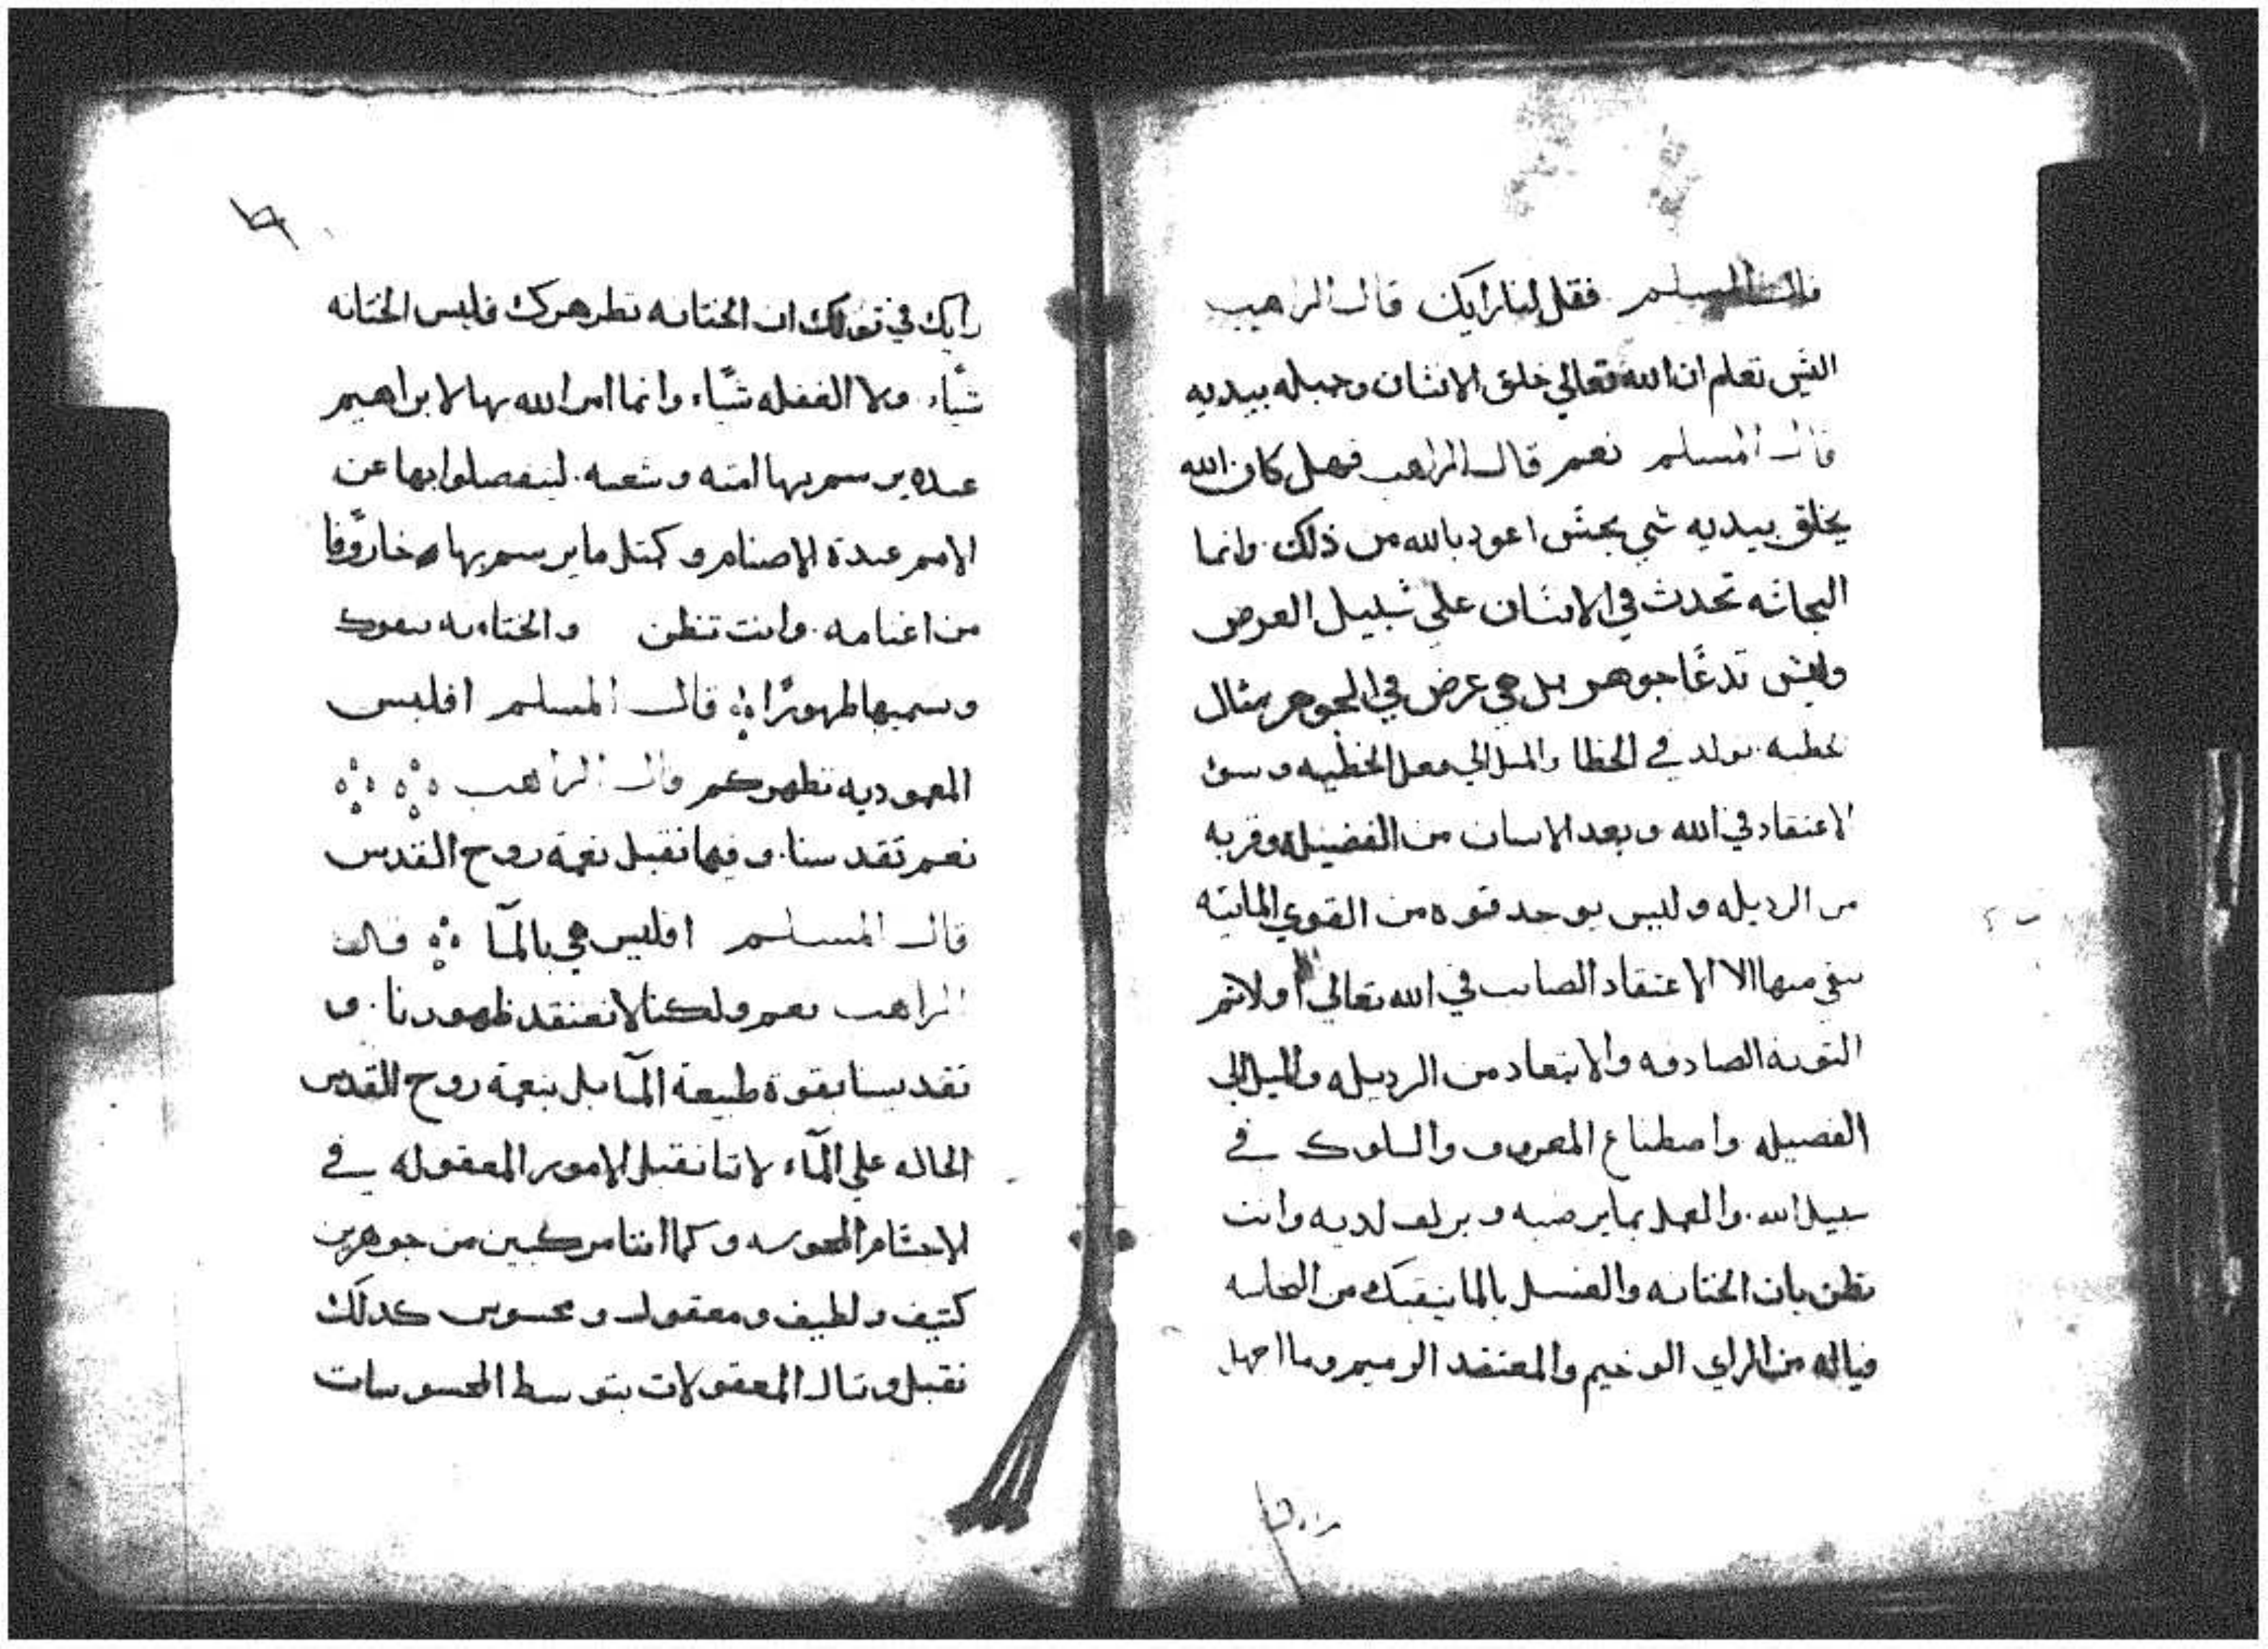 قال المسلم فقل لنا رايك قال الراهب
الئس تعلم ان الله تعالي خلق الانسان وجبله بيديه
قال المسلم نعم قال الراهب فهل كان الله
يخلق بيديه شي نجس اعود بالله من ذلك وانما
النجاسه تحدث في الانسان علي سبيل العرض
وليس تدعا جوهر بل هي عرض في الجوهر مثال
خطيه تولد في الخطا والميل الي فعل الخطيه وسو
الاعتقاد في الله وبعد الانسان من الفضيله وقربه
من الرديله وليس يوجد قوه من القوي المائيه
تنقي منها الا الاعتقاد الصائب في الله تعالي اولا ثم
التوبه الصادقه والابتعاد من الرديله والميل الي
الفضيله واصطناع المعروف والسلوك في
سبيل الله والعمل بما يرضيه ويزلف لديه وانت
تظن بان الختانه والغسل بالما ينقيك من النجاسه
فياله من الراي الوخيم والمعتقد الرميم وما اجهل
رايك في قولك ان الختانه تطهرك فليس الختانه
شيا ولا الغفله شيا وانما امر الله بها لابراهيم
عبده يرسم بها امته وشعبه لينفصلوا بها عن
الامم عبدة الاصنام وكمثل ما يرسم بها خاروفا
من اغنامه وانت تظن والختانه
وتسميها طهورا قال المسلم افليس
المعموديه تطهركم قال الراهب
نعم تقدسنا وفيها نقبل نعمة روح القدس
قال المسلم افليس هي بالمآ قال
الراهب نعم ولكنا لا نعتقد ظهورنا و
تقديسنا بقوة طبيعة المآ بل بنعمة روح القدس
الحاله علي المآء لاننا نقبل الامور المعقوله في
الاجسام المحسوسه وكما اننا مركبين من جوهرين
كثيف ولطيف ومعقول ومحسوس كدلك
نقبل وننال المعقولات بتوسط المحسوسات